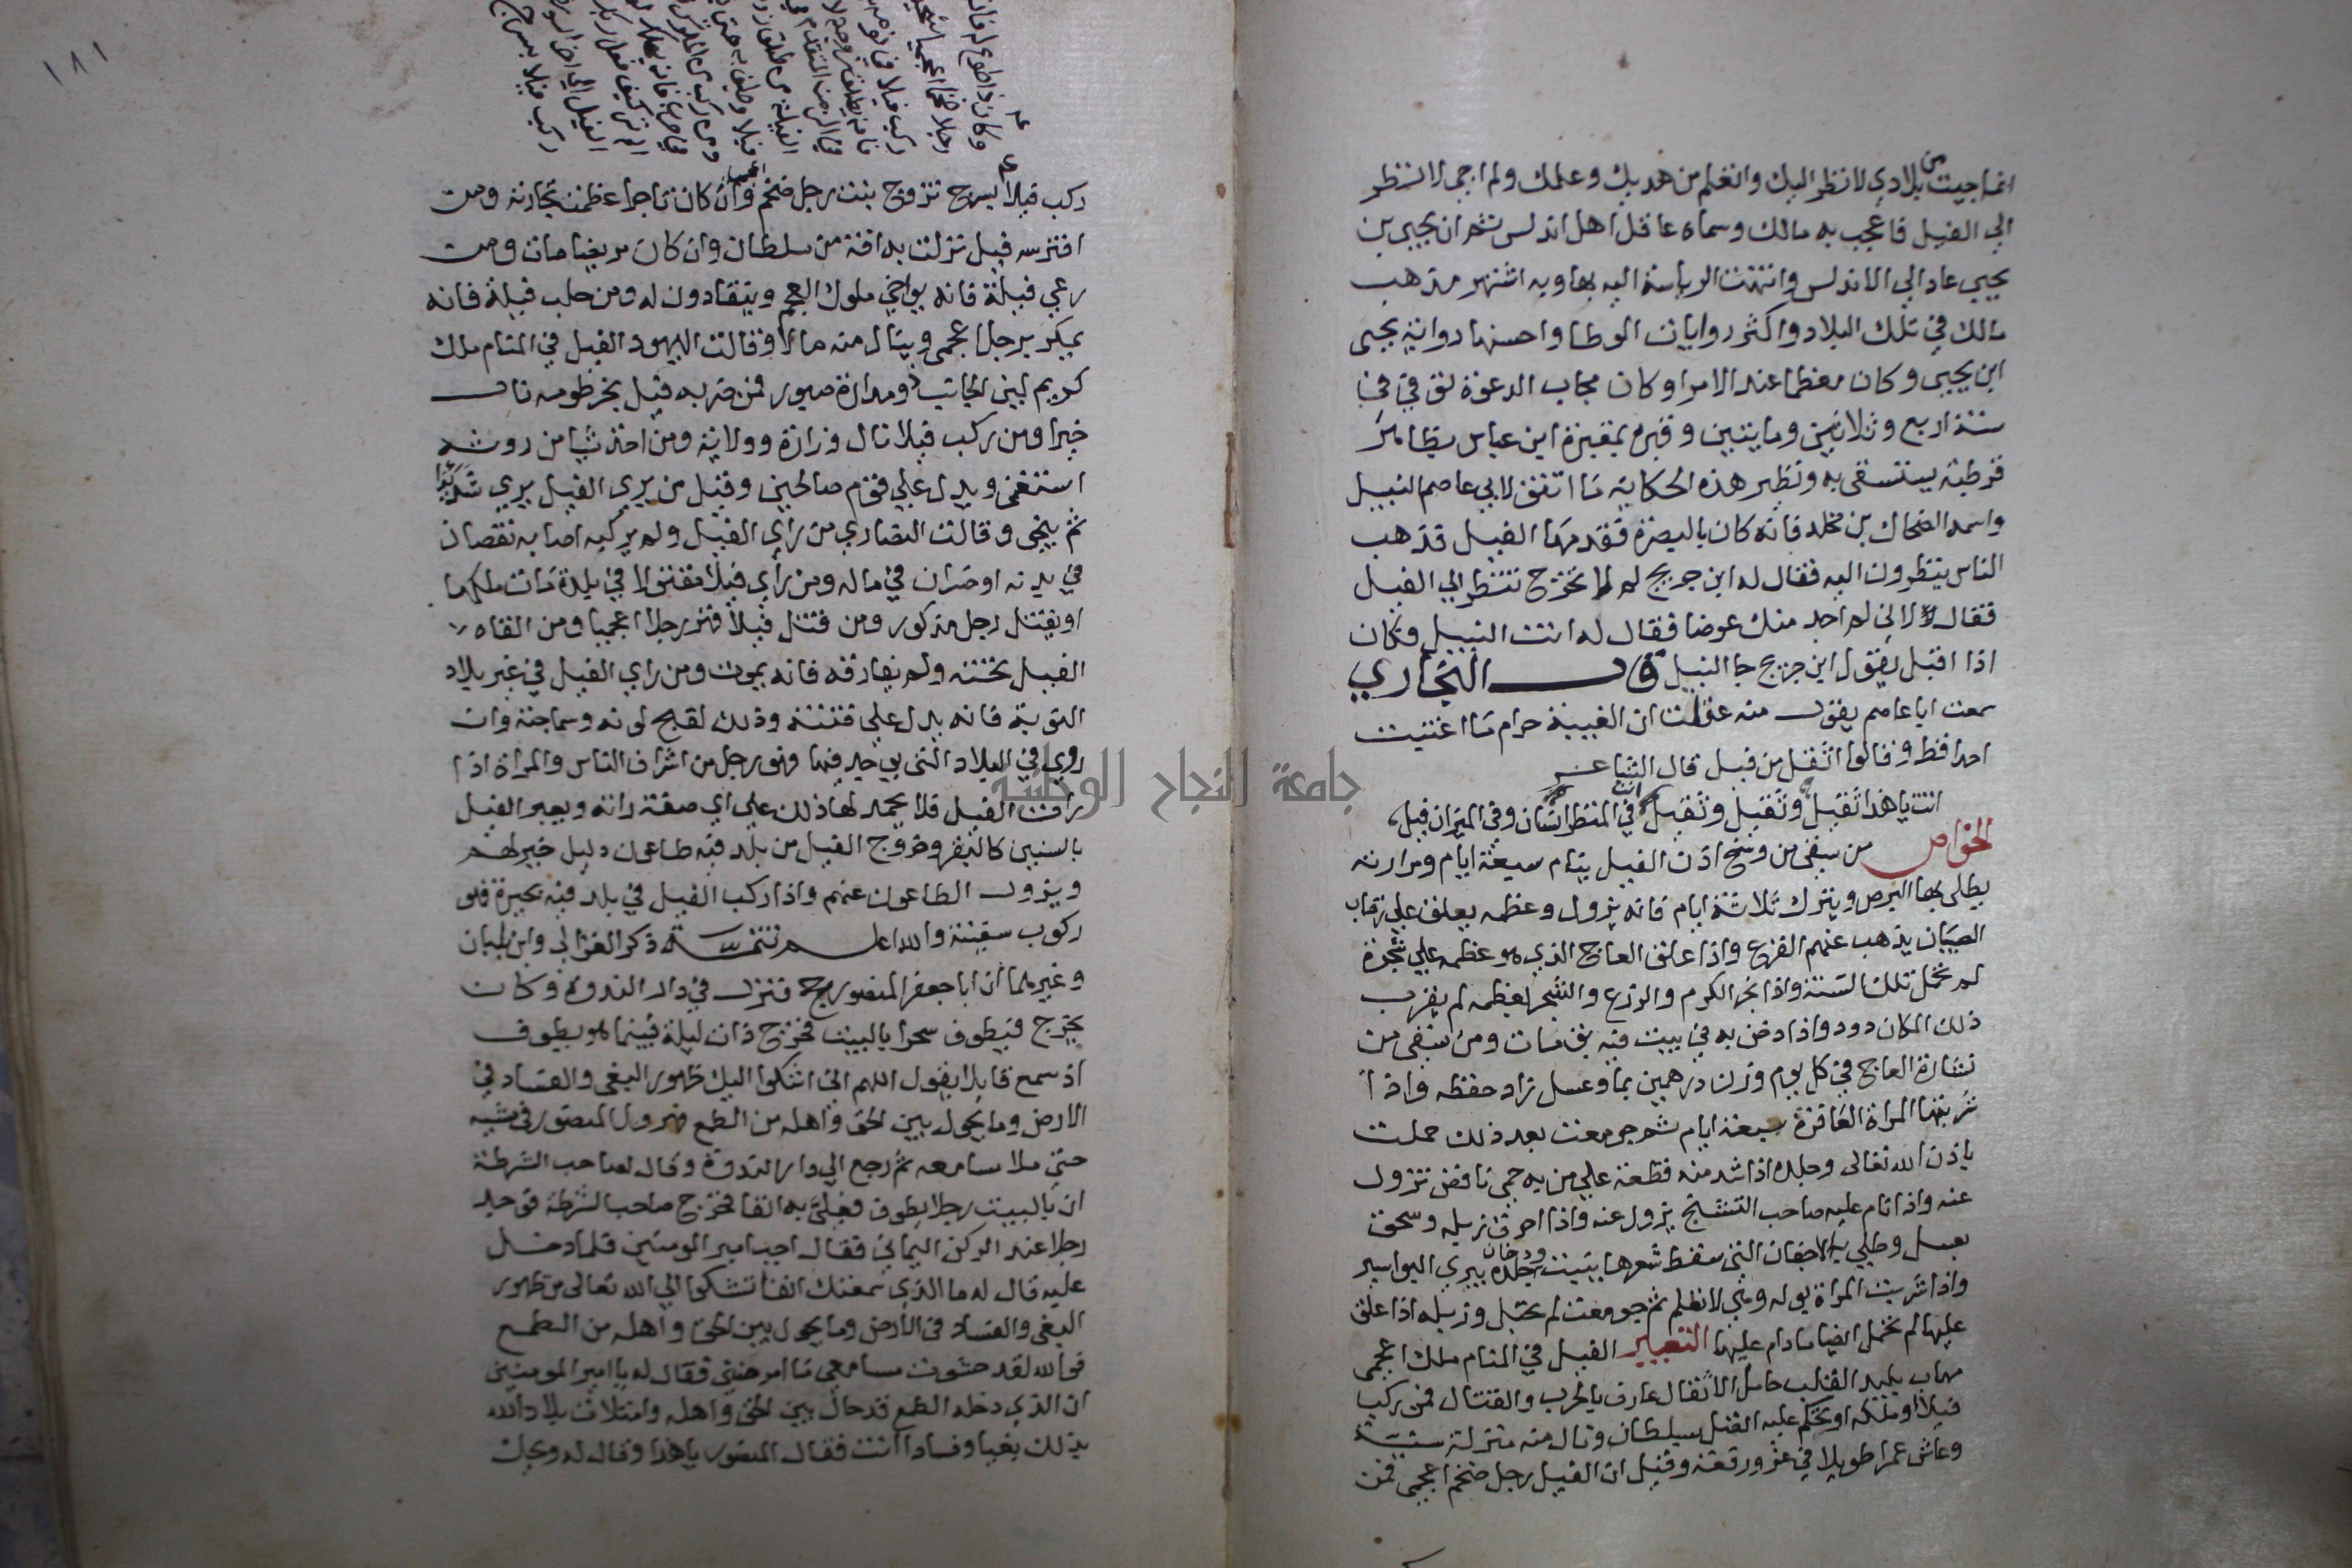 انما جيت من بلادي لانظر اليك واتعلم من هديك وعلمك ولم اجي لانظر
الي الفيل فاعجب به مالك وسماه عاقل اهل اندلس ثم ان يحيى بن
يحيى عاد الي الاندلس وانتهت الرياسة اليه بها وبه اشتهر مذهب
مالك في تلك البلاد واكثر روايات الموطا واحسنها رواية يحيى
ابن يحيى وكان معظما عند الامرا وكان مجاب الدعوة توفي في
سنة اربع وثلاثين وماتين وقبره بمقبرة ابن عباس بظاهر
قرطبة يستسقى به ونظير هذه الحكاية ما اتفق لابي عاصم النبيل
واسمه الضحاك بن مخلد فانه كان بالبصرة فقدمها الفيل فذهب
الناس ينظرون اليه فقال له ابن جريج لم لا تخرج تنظر الي الفيل
فقال لاني لم اجد منك عوضا فقال له انت النبيل وكان
اذا اقبل يقول ابن جريج جا النبيل قال البخاري
سمعت ابا عاصم يقول منذ عقلت ان الغيبة حرام ما اغتبت
احدا قط وقالوا اثقل من فيل قال الشاعر
انت يا هذا ثقيل وثقيل وثقيل انت في المنظر انسان وفي الميزان فيل
الخواص من سقي من وسخ اذن الفيل ينام سبعة ايام ومرارته
يطلى بها البرص ويترك ثلاثة ايام فانه يزول وعظمه يعلق علي رقاب
الصبيان يذهب عنهم الفزع واذا علق العاج الذي هو عظمه علي شجرة
لم تحمل تلك السنة واذا بخر الكرم والزرع والشجر بعظمه لم يقرب
ذلك المكان دود واذا دخن به في بيت فيه بق مات ومن سقي من
نشارة العاج في كل يوم وزن درهمين بما وعسل زاد حفظه واذا
شربتها المراة العاقرة سبعة ايام ثم جومعت بعد ذلك حملت
باذن الله تعالى وجلده اذا شد منه قطعة علي من به حمى نافض تزول
عنه واذا نام عليه صاحب التشنج يزول عنه واذا احرق زبله وسحق
بعسل وطلي به الاجفان التي سقط شعرها ينبت ودخان جلده يبري البواسير
واذا شربت المراة بوله وهي لا تعلم ثم جومعت لم تحبل وزبله اذا علق
عليها لم تحمل ايضا ما دام عليها التعبير الفيل في المنام ملك اعجمى
مهاب بليد القلب حامل الاثقال عارف بالحرب والقتال فمن ركب
فيلا او ملكه او تحكم عليه اتصل بسلطان ونال منه منزلة سنية
وعاش عمرا طويلا في عز ورفعة وقيل ان الفيل رجل ضخم اعجمى فمن
١٨١
ركب فيلا بسرج تزوج بنت رجل ضخم اعجمي وان كان تاجرا عظمت تجارته ومن
افترسه فيل نزلت به افة من سلطان وان كان مريضا مات ومن
رعي فيلة فانه يواخي ملوك العجم وينقادون له ومن حلب فيلة فانه
يمكر برجل اعجمى وينال منه مالا وقالت اليهود الفيل في المنام ملك
كريم لين الجانب ذو مداراة صبور فمن ضربه فيل بخرطومه نال
خيرا ومن ركب فيلا نال وزارة وولاية ومن اخذ شيا من روثه
استغنى ويدل علي قوم صالحين وقيل من يري الفيل يري شديدا
ثم ينجى وقالت النصاري من راي الفيل ولم يركبه اصابه نقصان
في بدنه او خسران في ماله ومن راي فيلا مقتولا في بلدة مات ملكها
او يقتل رجل مذكور ومن قتل فيلا قهر رجلا اعجميا ومن القاه
الفيل تحته ولم يفارقه فانه يموت ومن راي الفيل في غير بلاد
النوبة فانه يدل علي فتنة وذلك لقبح لونه وسماجته وان
روي في البلاد التى يوجد فيها فهو رجل من اشراف الناس والمراة اذا
رات الفيل فلا يحمد لها ذلك علي اي صفة راته ويعبر الفيل
بالسنين كالبقر وخروج الفيل من بلد فيه طاعون دليل خير لهم
ويزول الطاعون عنهم واذا ركب الفيل في بلد فيه بحيرة فهو
ركوب سفينة والله اعلم تتمة ذكر الغزالي وابن بلبان
وغيرهما ان ابا جعفر المنصور حج فنزل في دار الندوة وكان
يخرج فيطوف سحرا بالبيت فخرج ذات ليلة فبينما هو يطوف
اذ سمع قايلا يقول اللهم اني اشكوا اليك ظهور البغى والفساد في
الارض وما يحول بين الحق واهله من الطمع فهرول المنصور في مشيه
حتى ملا مسامعه ثم رجع الي دار الندوة وقال لصاحب الشرطة
ان بالبيت رجلا يطوف فعلي به انفا فخرج صاحب الشرطة فوجد
رجلا عند الركن اليماني فقال اجب امير المومنين فلما دخل
عليه قال له ما الذي سمعتك انفا تشكوا الي الله تعالى من ظهور
البغى والفساد في الارض وما يحول بين الحق واهله من الطمع
فوالله لقد حشوت مسامعي ما امرضني فقال له يا امير المومنين
ان الذي دخله الطمع قد حال بين الحق واهله وامتلات بلاد الله
بذلك بغيا وفسادا انت فقال المنصور يا هذا وقال له ويحك
جامعة النجاح الوطنية